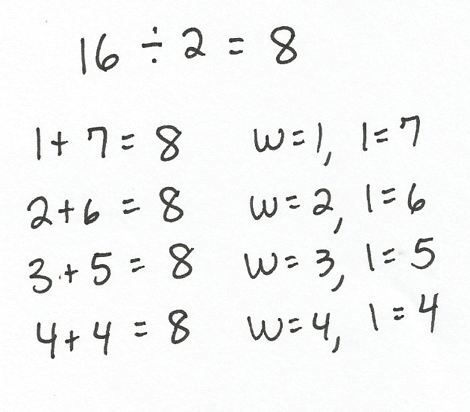 16 ÷ 2 = 8
1 + 7 = 8 w = 1, l = 7
2 + 6 = 8 w = 2, l = 6
3 + 5 = 8 w = 3, l = 5
4 + 4 = 8 w = 4, l = 4